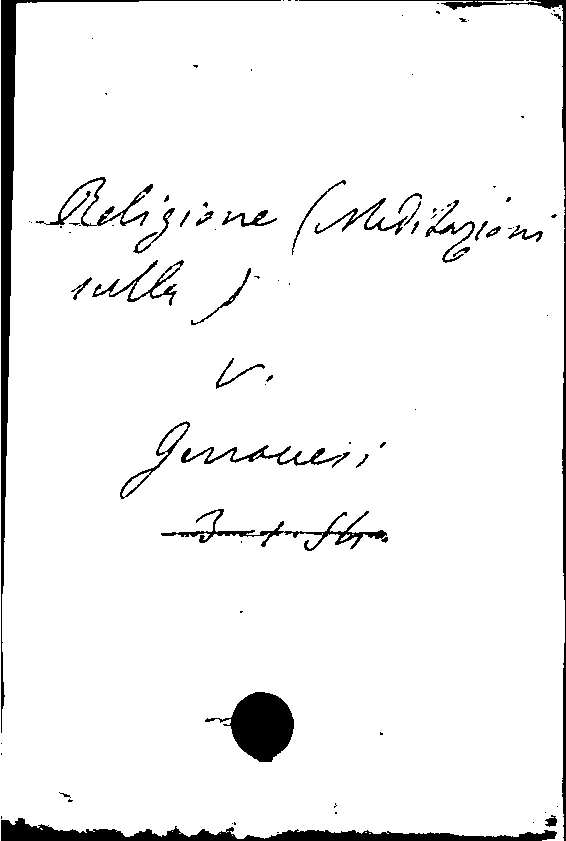 Religione (Meditazioni
sulla)
V.
Genovesi